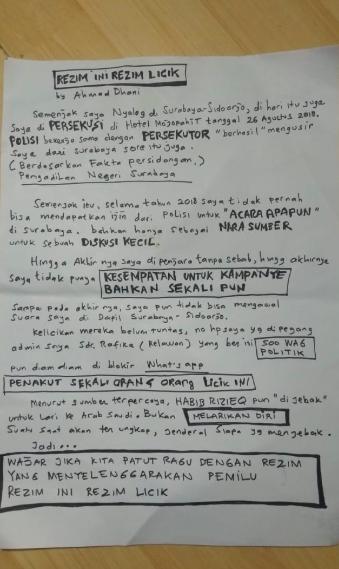 REZIM INI REZIM LICIK
by Ahmad Dhani
Semenjak saya Nyaleg di Surabaya-Sidoarjo, di hari itu juga
Saya di PERSEKUSI di Hotel Mojopahit tanggal 26 Agustus 2018.
POLISI bekerja sama dengan PERSEKUTOR "berhasil" mengusir
Saya dari Surabaya sore itu juga.
(Berdasarkan Fakta persidangan.)
Pengadilan Negeri Surabaya
Semenjak itu, selama tahun 2018 saya tidak pernah
bisa mendapatkan ijin dari Polisi untuk "ACARA APAPUN"
di Surabaya. bahkan hanya sebagai NARA SUMBER
untuk sebuah DISKUSI KECIL.
Hingga Akhirnya saya di penjara tanpa sebab, hingg akhirnye
saya tidak punya KESEMPATAN UNTUK KAMPANYE
BAHKAN SEKALI PUN
Sampe pada akhirnya, saya pun tidak bisa mengawal
suara saya di Dapil Surabaya - Sidoarjo.
Kelicikan mereka belum tuntas, no hp saya yg di pegang
admin saya Sdr. Rafika (Relawan) yang berisi 500 WAG
POLITIK
pun diam diam di blokir What's app
PENAKUT SEKALI ORANG Orang Licik INI
Menurut sumber terpercaya, HABIB RIZIEQ pun "di jebak"
untuk Lari ke Arab Saudi. Bukan MELARIKAN DIRI
Suatu saat akan terungkap, Jenderal Siapa yg mengebak.
Jadi...
WAJAR JIKA KITA PATUT RAGU DENGAN REZIM
YANG MENYELENGGARAKAN PEMILU
REZIM INI REZIM LICIK